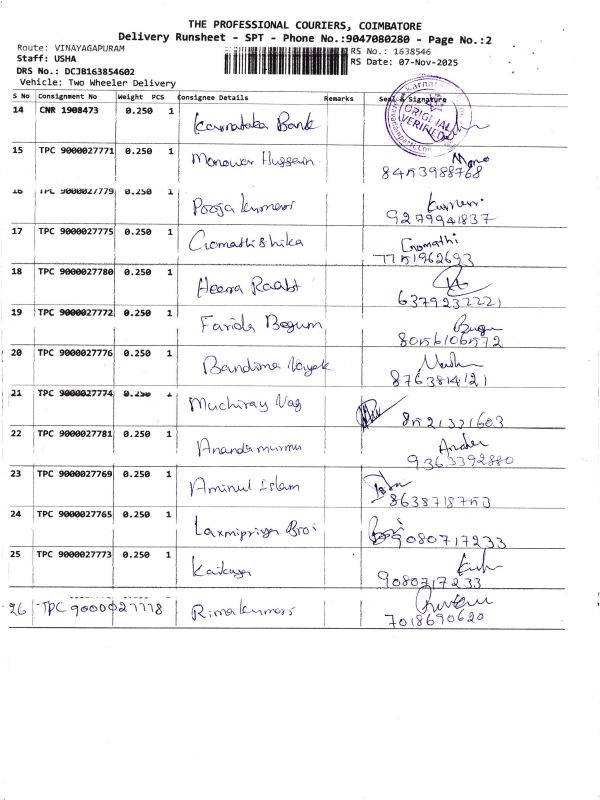 THE PROFESSIONAL COURIERS, COIMBATORE
Delivery Runsheet - SPT - Phone No.:9047080280 - Page No.:2
Route: VINAYAGAPURAM
RS No.: 1638546
Staff: USHA
RS Date: 07-Nov-2025
DRS No.: DCJB163854602
Vehicle: Two Wheeler Delivery
S No Consignment No Weight PCS Consignee Details Remarks Seal & Signature
14 CNR 1908473 0.250 1 Karnataka Bank
ORIGINAL VERIFIED
15 TPC 9000027771 0.250 1 Monower Hussain Mono
8453988768
16 TPC 9000027779 0.250 1 Pooja Kumari Kumari
9279941837
17 TPC 9000027775 0.250 1 Gomathishika Gomathi
7751962693
18 TPC 9000027780 0.250 1 Heena Raabt
6379232221
19 TPC 9000027772 0.250 1 Farida Begum Begum
8056106572
20 TPC 9000027776 0.250 1 Bandima Nayak
8763814121
21 TPC 9000027774 0.250 1 Muchiray Nag
8521331603
22 TPC 9000027781 0.250 1 Anandamurmu
9363392880
23 TPC 9000027769 0.250 1 Aminul Islam
8638718753
24 TPC 9000027765 0.250 1 Laxmipriya Broi
9080717233
25 TPC 9000027773 0.250 1 Kaikaya
9080717233
26 TPC 9000027778 Rimakumari
7018690620